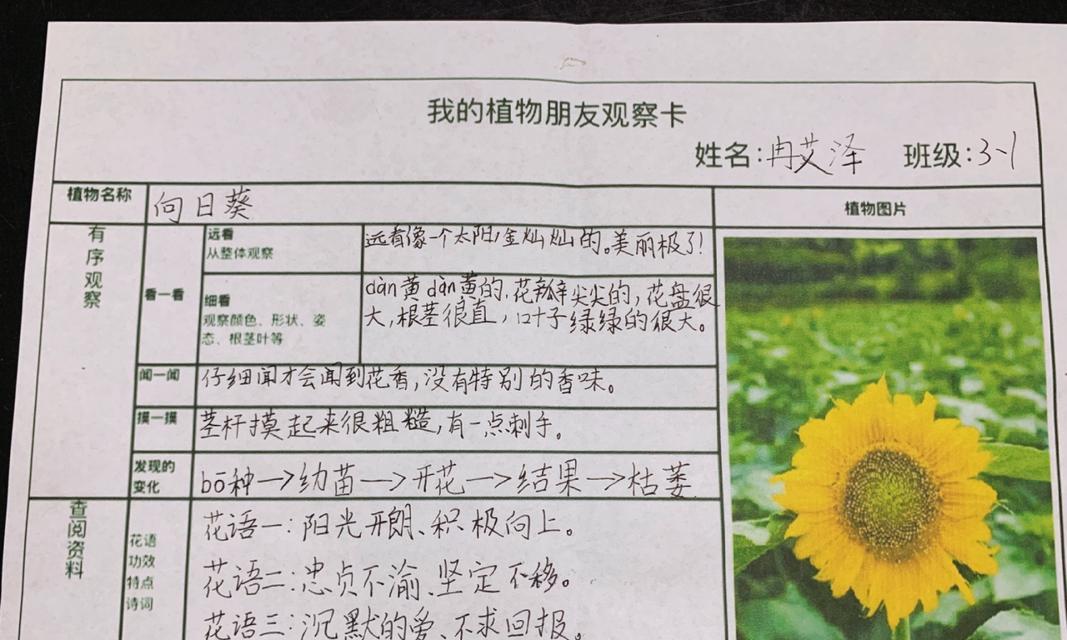 我的植物朋友观察卡
姓名:冉艾泽 班级:3-1
植物名称
向日葵
植物图片
有序观察
看一看
远看
从整体观察
远看像一个太阳,金灿灿的。美丽极了!
细看
观察颜色、形状、姿
态、根茎叶等
dàn黄dàn黄的,花瓣尖尖的,花盘很
大,根茎很直,叶子绿绿的很大。
闻一闻
仔细闻才会闻到花香,没有特别的香味。
摸一摸
茎杆摸起来很粗糙,有一点刺手。
发现的
变化
bō种→幼苗→开花→结果→枯萎
查阅资料
花语
功效
特点
诗词
花语一:阳光开朗、积极向上。
花语二:忠贞不渝、坚定不移。
花语三:沉默的爱、不求回报。